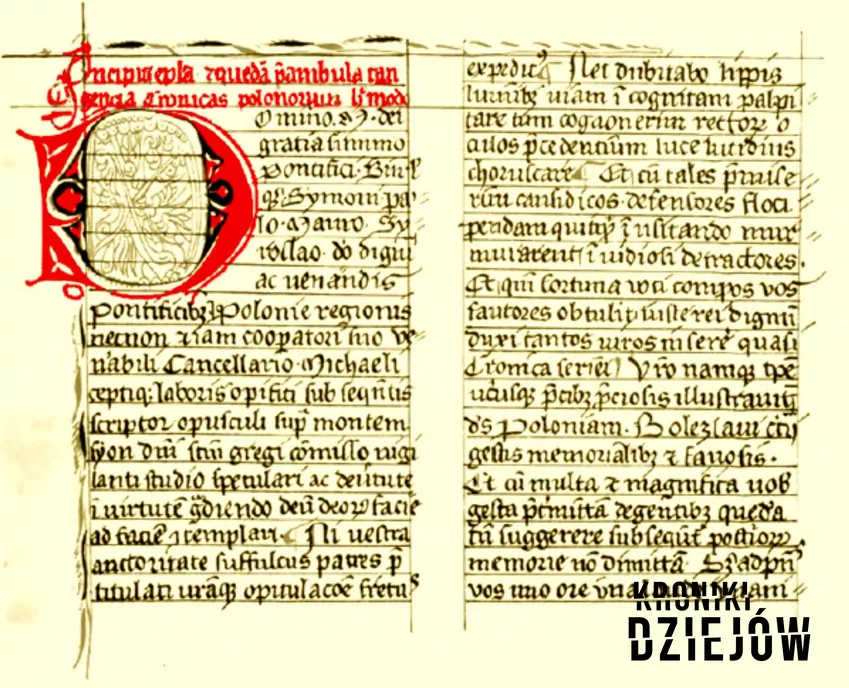 Incipit epła ⁊ quedā p̄ambula tan
gencia cronicas polonorum
Domino. M. dei
gratia summo
Pontifici.
qȝ Symoni pa
lo. Mauro. Sy
roslao. do digni
ac uenandis
Pontificibȝ Polonie regionis
necnon etiam coopatori suo ve
nabili Cancellario Michaeli
ceptiqȝ laboris opifici sub seqntis
scriptor opusculi sup̄ montem
syon dnī scm̄ gregi cōmisso uigi
lanti studio speculari ac deuirtute
i virtutē gdiendo deū deoꝝ facie
ad faciē ꝯtemplari. Ni uestra
auctoritate suffulcus patres p̄
titulati urāqȝ opitulacōe fretꝰ
expedit Nec dubitabo lippis
luminibȝ uiam ī cognitam palpi
tare tam cognouerim rectoꝝ o
culos p̄cedentium luce lucidius
choruscare Et cū tales p̄mise
rim causidicos defensores floci
pendam quitqȝ ī uisitando mur
murarent ī uidiosi detractores.
Et qm̄ fortuna voti compos vos
fautores obtulit iuste rei dignū
duxi tantos uiros inserē quasi
Cronica seriei Vro namqȝ tpē
uēisqȝ p̄cibȝ p̄ciosis illustrauit
ds Poloniam. Bolezlaui tcii
gestis memorialibȝ ⁊ famosis.
Et cū multa ⁊ magnifica uob
gesta p̄tmittā degentibȝ quedā
tn̄ suggerere subsequēt postioꝝ
memorie nō dimittā. Sȝ adpn̄
vos uno ore
KRONIKI
DZIEJÓW